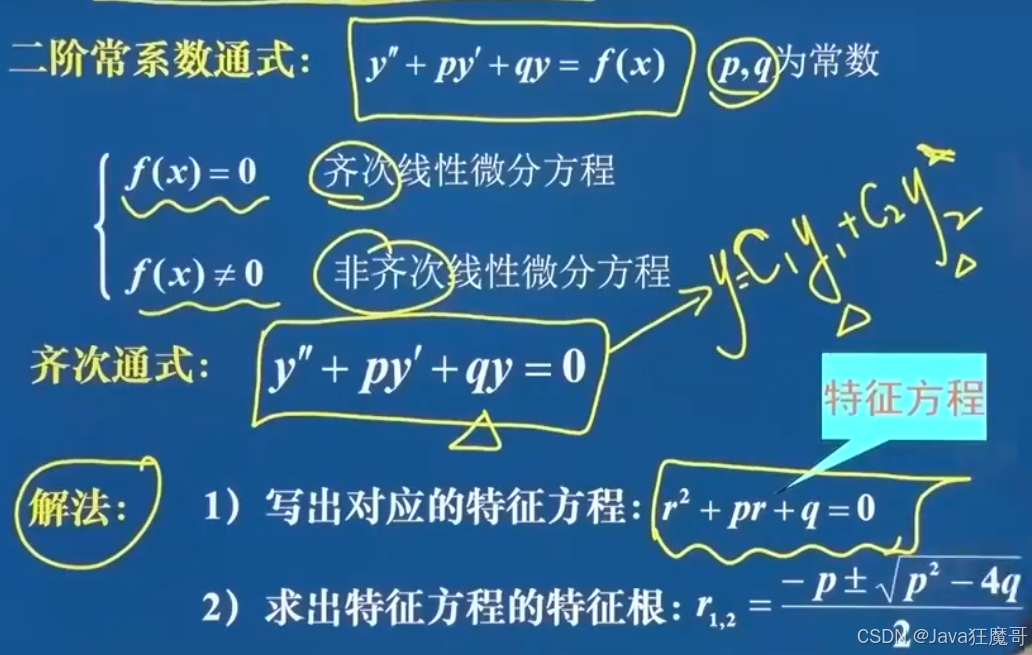 二阶常系数通式: y″ + py′ + qy = f(x) p,q为常数
f(x) = 0 齐次线性微分方程
f(x) ≠ 0 非齐次线性微分方程
y=C₁y₁+C₂y₂
齐次通式: y″ + py′ + qy = 0
特征方程
解法: 1) 写出对应的特征方程: r² + pr + q = 0
2) 求出特征方程的特征根: r₁,₂ = (−p ± √(p² − 4q)) / 2
CSDN @Java狂魔哥